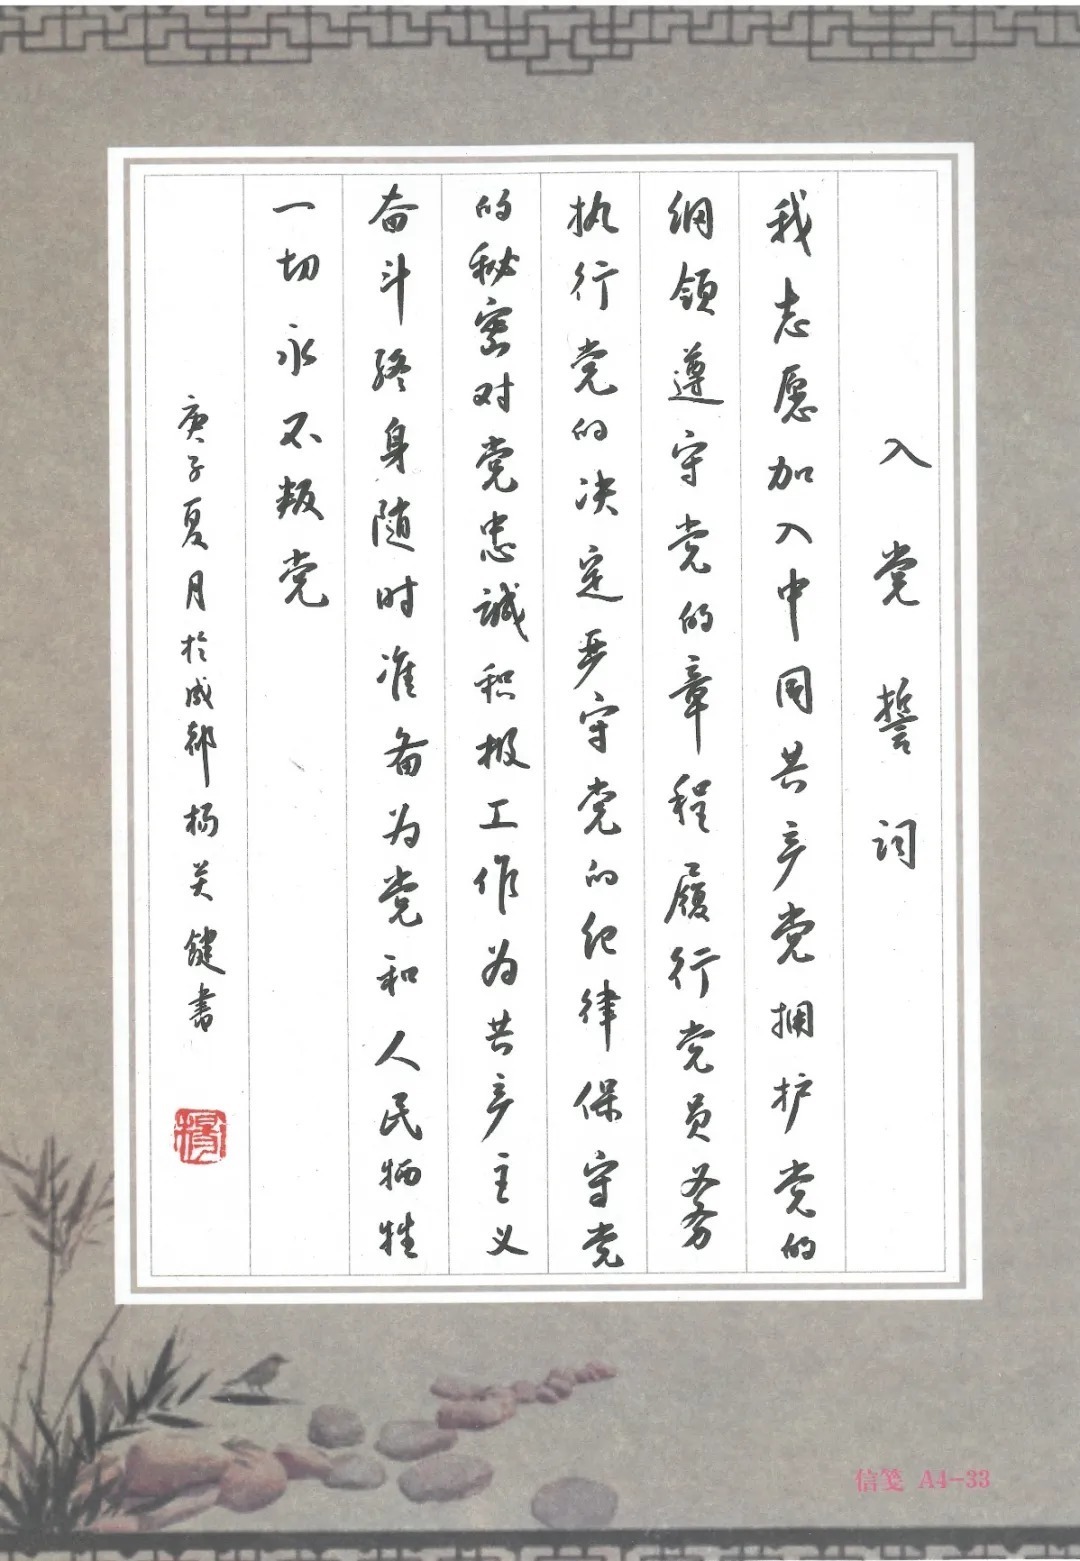 入党誓词
我志愿加入中国共产党拥护党的
纲领遵守党的章程履行党员义务
执行党的决定严守党的纪律保守党
的秘密对党忠诚积极工作为共产主义
奋斗终身随时准备为党和人民牺牲
一切永不叛党
庚子夏月于成都杨关键书
杨
信笺 A4-33